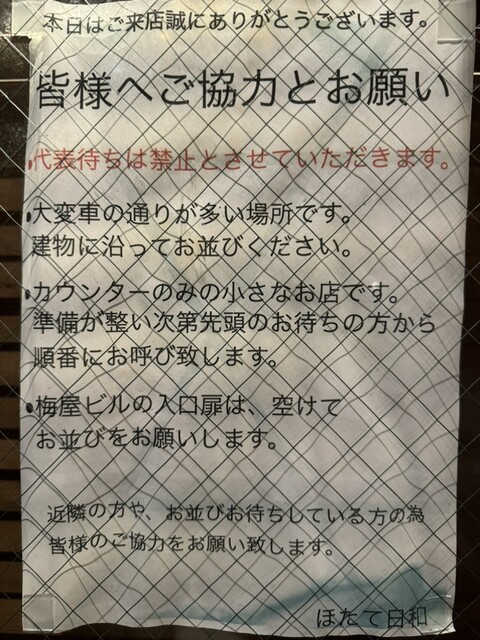 本日はご来店誠にありがとうございます。
皆様へご協力とお願い
・代表待ちは禁止とさせていただきます。
・大変車の通りが多い場所です。
建物に沿ってお並びください。
・カウンターのみの小さなお店です。
準備が整い次第先頭のお待ちの方から
順番にお呼び致します。
・梅屋ビルの入口扉は、空けて
お並びをお願いします。
近隣の方や、お並びお待ちしている方の為
皆様のご協力をお願い致します。
ほたて日和